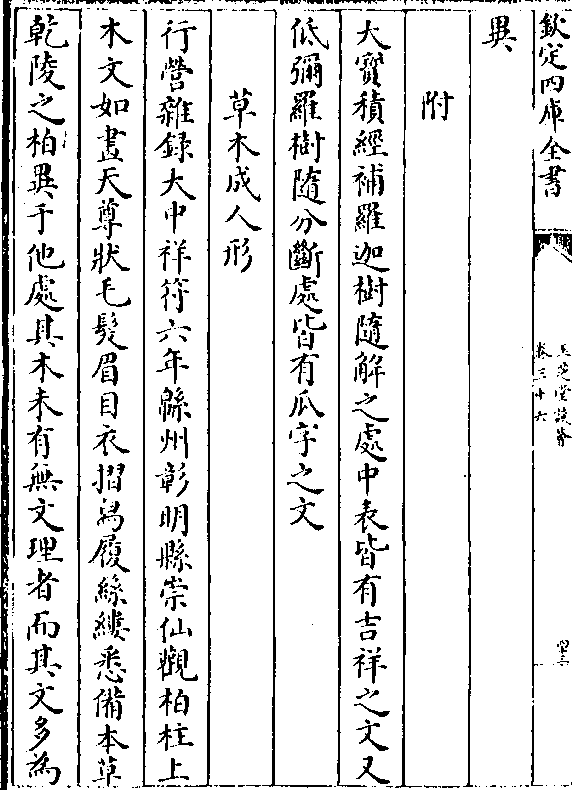 欽定四庫全書
玉芝堂談薈
卷三十六
異
附
大寳積經補羅迦樹隨解之處中表皆有吉祥之文又
低彌羅樹隨分斷處皆有瓜字之文
草木成人形
行營雜録大中祥符六年緜州彰明縣崇仙觀柏柱上
木文如畫天尊狀毛髮眉目衣摺舄履絲縷悉備本草
乾陵之柏異于他處其木未有無文理者而其文多為